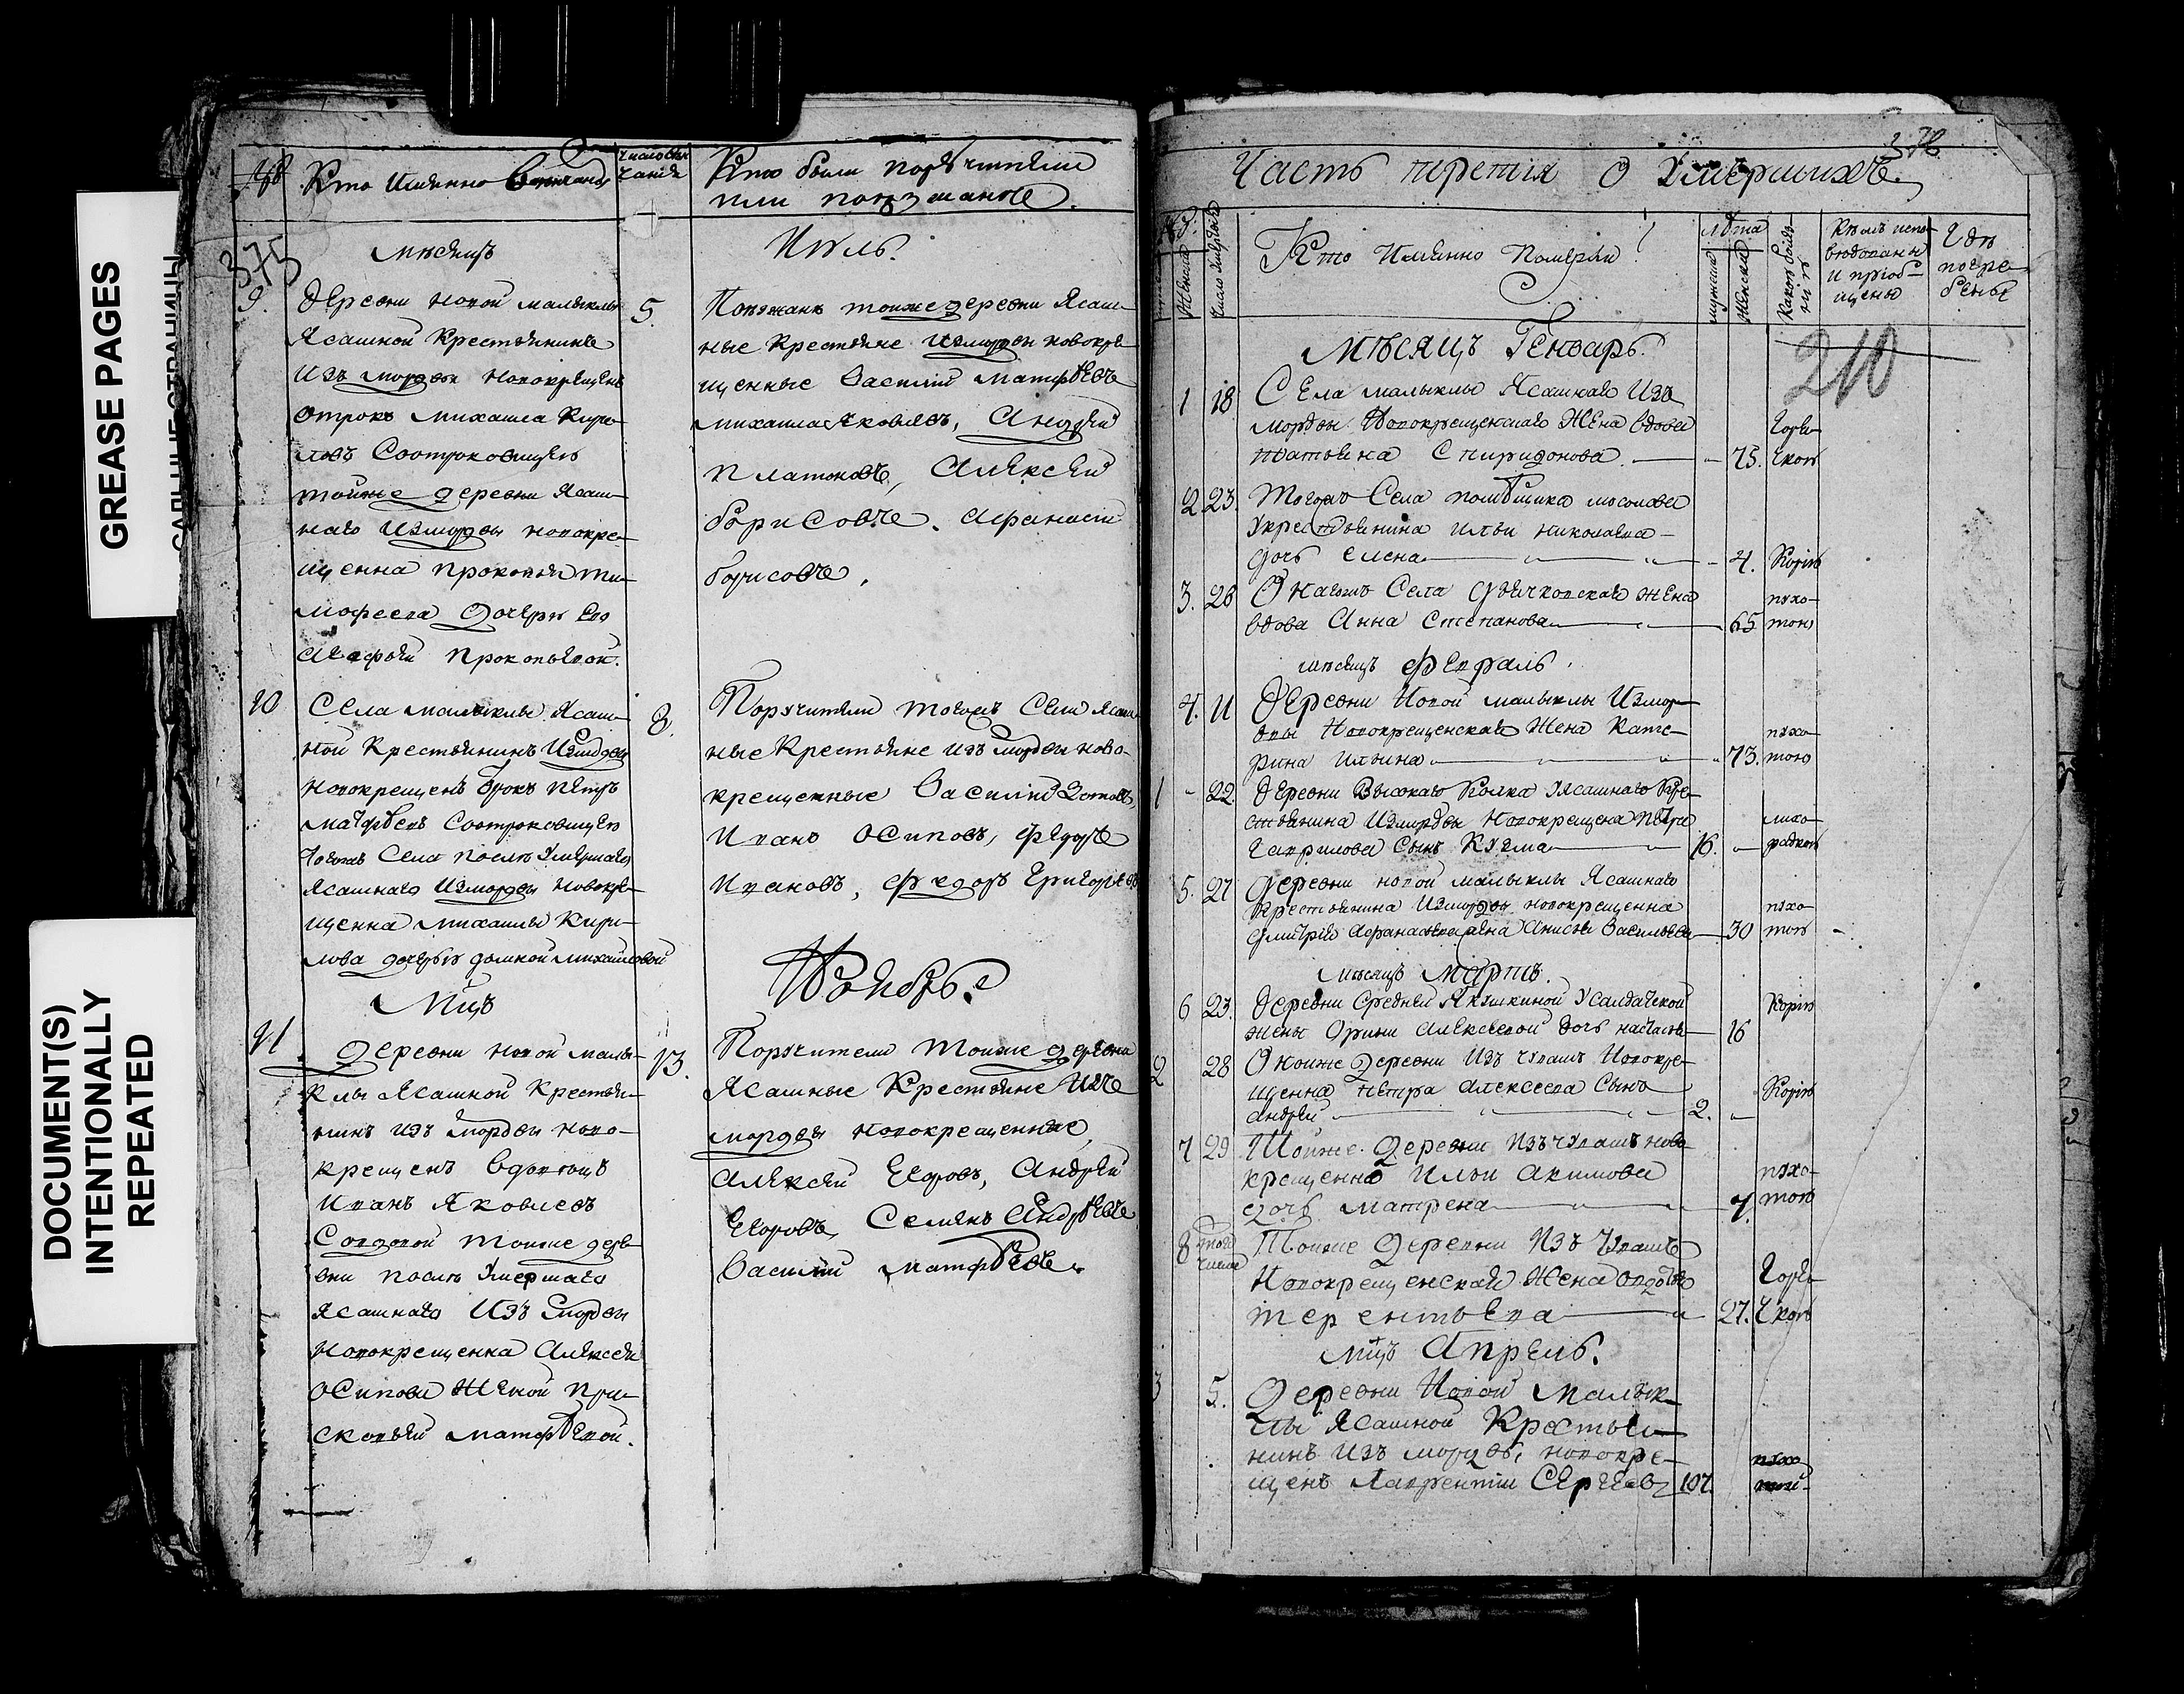 GREASE PAGES
DOCUMENT(S)
INTENTIONALLY
REPEATED
№
Кто именно венчаны
число вен
чанія
Кто были поручители
или поезжаные
375
мѣсяцъ
Июль.
9.
деревни новой малыклы
5.
ясашной крестьянинъ
изъ мордвы новокрещенъ
отрокъ михаила Кири-
ловъ соотроковицею
тойже деревни ясаш-
наго измордвы новокре-
щенна прокопья ти-
мофеева дочерью ево
агафьей прокопьевой.
Поезжанъ тойже деревни ясаш-
ные крестьяне измордвы новокре
щенные василий матфѣевъ
михаила яковлевъ, андрей
платоновъ, алексей
борисовъ. афанасей
борисовъ.
10
Села малыклы ясаш-
8.
ной крестьянинъ измордвы
новокрещенъ отрокъ петръ
матфѣевъ соотроковицею
тогожъ села послѣ умершаго
ясашнаго измордвы новокре-
щенна михаилы Кири-
лова дочерью домной михайловой
Поручители тогожъ села ясаш-
ные крестьяне изъ мордвы ново-
крещенные василий Зотовъ,
иванъ осиповъ, федоръ
ивановъ, федоръ григорьевъ
Мцъ
Ноябрь.
11
деревни новой малы-
13.
клы ясашной крестьян-
нинъ изъ мордвы ново-
крещенъ вдовецъ
иванъ яковлевъ
совдовой тойже дере-
вни послѣ умершаго
ясашнаго изъ мордвы
новокрещенна алексея
осипова женой пра-
сковьей матфѣевой.
Поручители тойже деревни
ясашные крестьяне изъ
мордвы новокрещенные,
алексей егоровъ, андрей
егоровъ, семенъ андрѣевъ
василий матфѣевъ.
376
Часть третія о умершихъ.
№
женска
число умертвія
Кто именно померли
лѣта
мужска
женска
Какою болѣз
нію
Кѣмъ испо-
вѣдованы
и пріоб-
щены
Гдѣ
погре-
бены
210
Мѣсяцъ Генварь.
1 18 Села малыклы ясашнаго изъ
мордвы новокрещенскаго жена вдова
татьяна спиридонова 75. горя-
чкою
2 23. Тогожъ села помѣщика мосолова
укрестьянина ильи николаева
дочь елена 4. Корью
3. 26 Онагожъ села жена
вдова анна степанова 65 пухо-
тою
мѣсяцъ февраль.
4. 11 деревни новой малыклы измор
двы новокрещенскаго жена кате-
рина ильина 73. пухо-
тою
1 - 22 деревни высокаго колка уясашнаго кре
стьянина измордвы новокрещена петра
гаврилова сынъ Кузма 16. лихо-
радкою
5. 27 деревни новой малыклы ясашнаго
крестьянина измордвы новокрещенна
дмитрія афанасьева жена анисья васильева 30 пухо-
тою
мѣсяцъ мартъ.
6 23. деревни средней якушкиной усалдатской
жены орины алексѣевой дочь настасья 16 Корью
2 28 Оноиже деревни изъ чувашъ новокре-
щенна петра алексеева сынъ
андрей 2. Корью
7 29 Тойже деревни изъ чувашъ ново
крещенна ильи акимова
дочь матрена 7. пухо-
тою
8 того числа Тойже деревни изъ чувашъ
новокрещенской жена авдотья
терентьева 27. горя-
чкою
мцъ Апрель.
3 5. деревни новой малык-
лы ясашной крестья-
нинъ изъ мордвы новокре-
щенъ лаврентій сергеевъ 107.